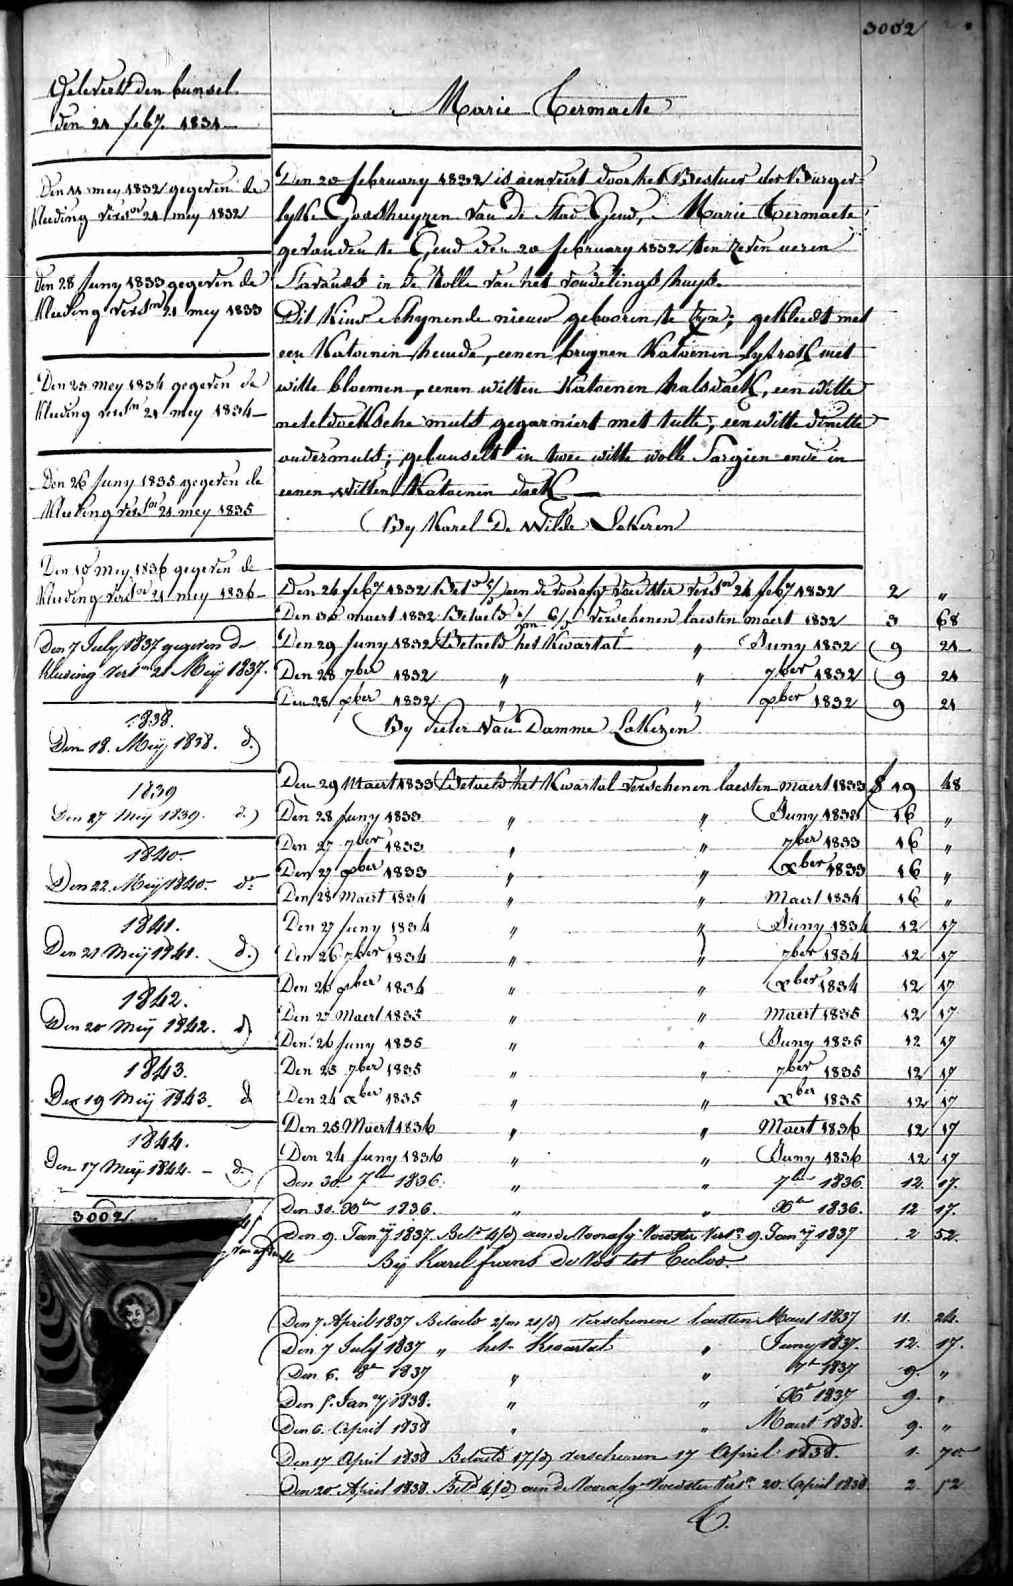 3002
Gelevert den bunsel.
den 21 feb^y. 1834
Marie Termaete
Den 11 mey 1832 gegeven de
kleeding versn. 21 mey 1832
Den 28 Juny 1833 gegeven de
kleeding versn. 21 mey 1833
Den 23 mey 1834 gegeven de
kleeding versn. 21 mey 1834
Den 26 Juny 1835 gegeven de
kleeding versn. 21 mey 1835
Den 10 mey 1836 gegeven de
kleeding versn. 21 mey 1836
Den 7 July 1837 gegeven de
kleeding versn. 21 Meÿ 1837.
1838.
Den 18. Meÿ 1838. d.)
1839
Den 27 Meÿ 1839. d.)
1840.
Den 22. Meÿ 1840. do.
1841.
Den 21 Meÿ 1841. d.)
1842.
Den 20 Meÿ 1842. d)
1843.
Den 19 Meÿ 1843. d
1844.
Den 17 Meÿ 1844. - d.
3002
Den 20 february 1832 is aenveirt door het Bestuer der Burger-
lyke Godshuyzen van de Stad Gend, Marie Termaete
gevonden te Gend den 20 february 1832 ten zeven ueren
s'avonds in de Rolle van het vondelings huys.
Dit Kind schynende nieuw gebooren te zyn; gekleedt met
een Katoenen hemde, eenen bruynen Katoenen lyfrok met
witte bloemen, eenen witten Katoenen halsdoek, een witte
neteldoeksche muts gegarniert met tulle, een witte dimitte
ondermuts; gebunselt in twee witte wolle Sargien ende in
eenen witten Katoenen doek
By Karel De Wilde Lokeren
Den 24 feb^y 1832 Bet^d 4/d aen de voorafg. voedster vers^n 24 feb^y 1832 2 "
Den 30 maert 1832 Betaeld verschenen laesten maert 1832 3 68
Den 29 Juny 1832 Betaeld het Kwartal " Juny 1832 9 21
Den 28 7ber 1832 " " 7ber 1832 9 21
Den 28 xber 1832 " " xber 1832 9 21
By Pieter Van Damme Lokeren
Den 29 Maert 1833 Betaeld het Kwartal verschenen laesten maert 1833 f 19 48
Den 28 Juny 1833 " " Juny 1833 16 "
Den 27 7ber 1833 " " 7ber 1833 16 "
Den 27 xber 1833 " " xber 1833 16 "
Den 28 Maert 1834 " " Maert 1834 16 "
Den 27 Juny 1834 " " Juny 1834 12 17
Den 26 7ber 1834 " " 7ber 1834 12 17
Den 26 xber 1834 " " xber 1834 12 17
Den 27 Maert 1835 " " Maert 1835 12 17
Den 26 Juny 1835 " " Juny 1835 12 17
Den 25 7ber 1835 " " 7ber 1835 12 17
Den 24 xber 1835 " " xber 1835 12 17
Den 25 Maert 1836 " " Maert 1836 12 17
Den 24 Juny 1836 " " Juny 1836 12 17
Den 30. 7be 1836. " " 7be 1836. 12. 17.
Den 30. Xbe 1836. " " Xbe 1836. 12 17.
Den 9. Jan^y 1837. Bet^d 4/d) aen de Voorafg. Voedster Vers^n. 9. Jan^y 1837 2 52
Bÿ Karel frans De Vos tot Eecloo.
Den 7 April 1837 Betaeld 2/m 21/d) verschenen laesten Maert 1837 11. 24.
Den 7 July 1837 " het Kwartal " Juny 1837. 12. 17.
Den 6. 8be 1837 " " 7be 1837 9. "
Den 5. Jan^y 1838. " " Xbe 1837 9. "
Den 6. April 1838 " " Maert 1838. 9. "
Den 17 April 1838 Betaeld 17/d) verschenen 17 April 1838. 1. 70
Den 20 April 1838 Bet^d 4/d) aen de Voorafg. Voedster Vers^n. 20. April 1838. 2. 52